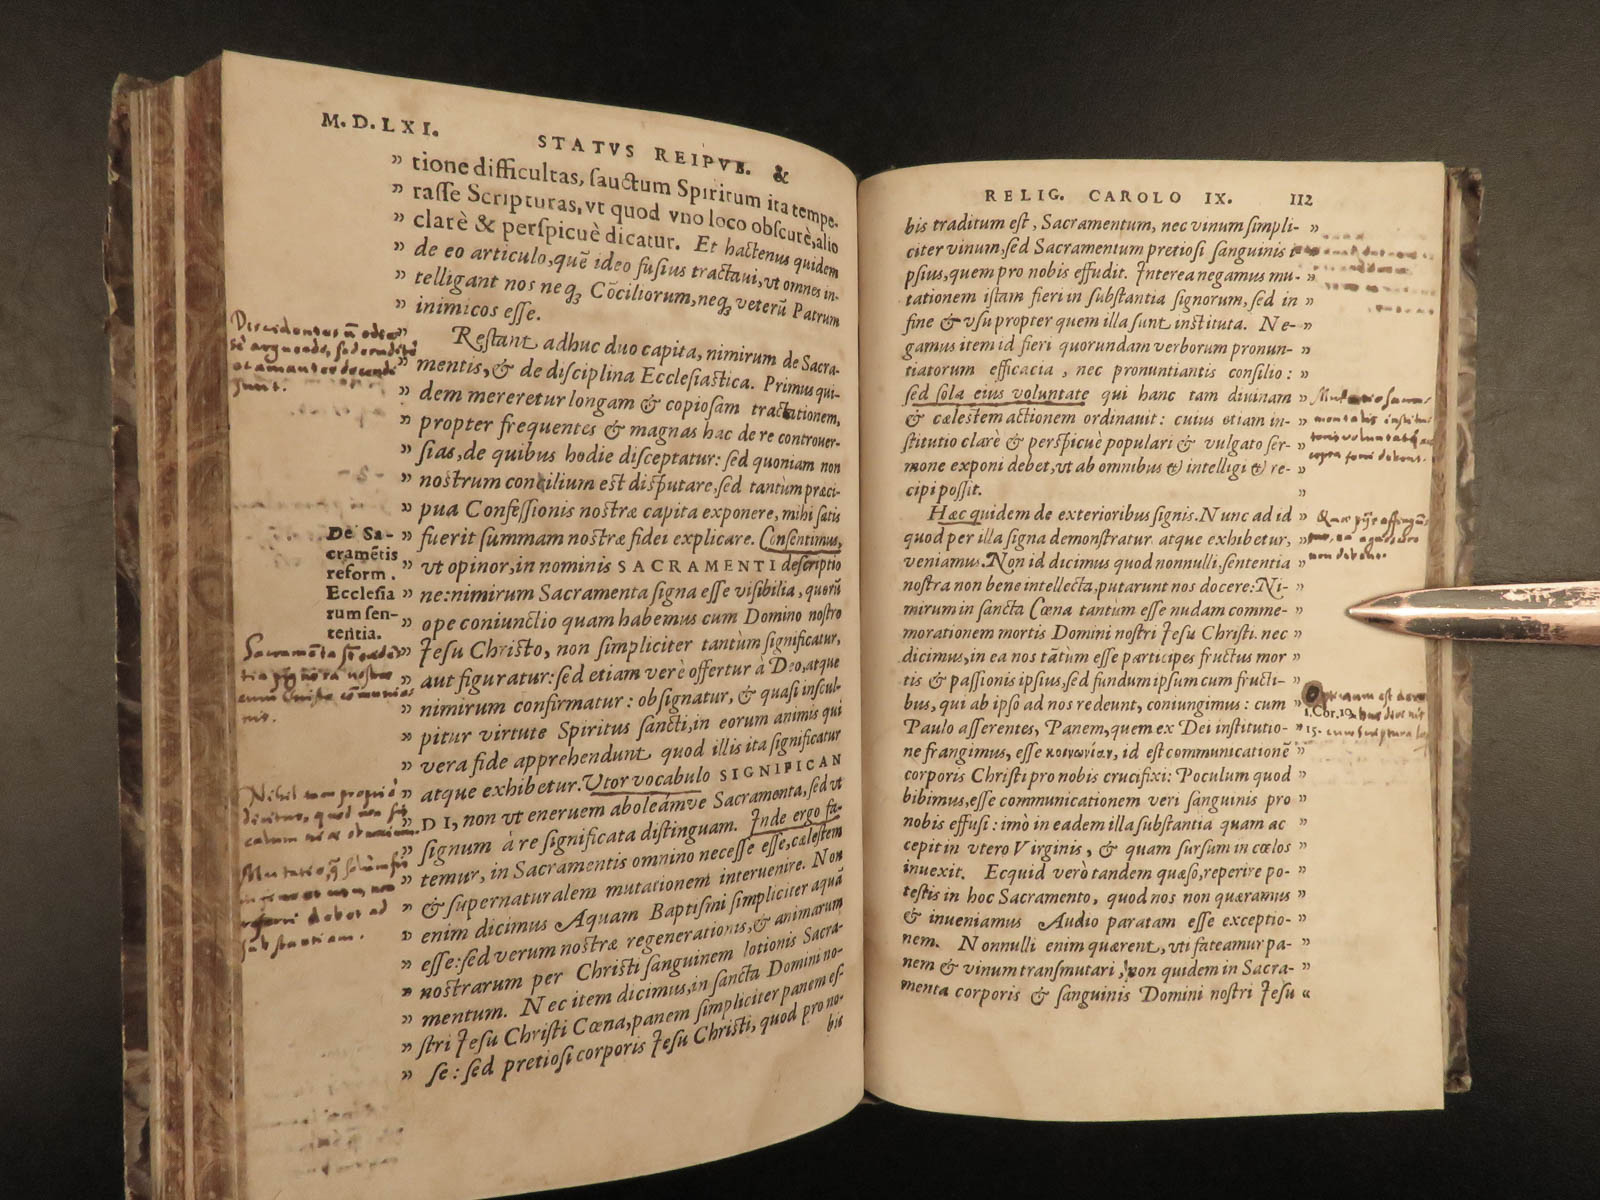 M. D. LXI.
STATVS REIPVB. &
” tione difficultas, sanctum Spiritum ita tempe-
” rasse Scripturas, vt quod vno loco obscurè, alio
” clarè & perspicuè dicatur. Et hactenus quidem
” de eo articulo, quē ideo fusius tractaui, vt omnes in-
” telligant nos neq; Cōciliorum, neq; veterū Patrum
” inimicos esse.
” Restant adhuc duo capita, nimirum de Sacra-
” mentis, & de disciplina Ecclesiastica. Primus qui-
” dem mereretur longam & copiosam tractationem,
” propter frequentes & magnas hac de re controuer-
” sias, de quibus hodie disceptatur: sed quoniam non
” nostrum concilium est disputare, sed tantùm præci-
” pua Confessionis nostræ capita exponere, mihi satis
” fuerit summam nostræ fidei explicare. Consentimus,
” vt opinor, in nominis SACRAMENTI descriptio
” ne: nimirum Sacramenta signa esse visibilia, quorū
” ope coniunctio quam habemus cum Domino nostro
” Jesu Christo, non simpliciter tantùm significatur,
” aut figuratur: sed etiam verè offertur à Deo, atque
” nimirum confirmatur: obsignatur, & quasi inscul-
” pitur virtute Spiritus sancti, in eorum animis qui
” vera fide apprehendunt quod illis ita significatur
” atque exhibetur. Utor vocabulo SIGNIFICAN
” DI, non vt eneruem aboleámve Sacramenta, sed vt
” signum à re significata distinguam. Inde ergo fa-
” temur, in Sacramentis omnino necesse esse, cælestem
” & supernaturalem mutationem interuenire. Non
” enim dicimus Aquam Baptismi simpliciter aquā
” esse: sed verum nostræ regenerationis, & animarum
” nostrarum per Christi sanguinem lotionis Sacra-
” mentum. Nec item dicimus, in sancta Domini no-
” stri Jesu Christi Cœna, panem simpliciter panem es-
” se: sed pretiosi corporis Jesu Christi, quod pro no-
bis
De Sa-
cramētis
reform.
Ecclesia
rum sen-
tentia.
RELIG. CAROLO IX. 112
bis traditum est, Sacramentum, nec vinum simpli- ”
citer vinum, sed Sacramentum pretiosi sanguinis i ”
psius, quem pro nobis effudit. Interea negamus mu- ”
tationem istam fieri in substantia signorum, sed in ”
fine & vsu propter quem illa sunt instituta. Ne- ”
gamus item id fieri quorundam verborum pronun- ”
tiatorum efficacia, nec pronuntiantis consilio: ”
sed sola eius voluntate qui hanc tam diuinam ”
& cælestem actionem ordinauit: cuius etiam in- ”
stitutio clarè & perspicuè populari & vulgato ser- ”
mone exponi debet, vt ab omnibus & intelligi & re- ”
cipi possit. ”
Hæc quidem de exterioribus signis. Nunc ad id ”
quod per illa signa demonstratur atque exhibetur, ”
veniamus. Non id dicimus quod nonnulli, sententia ”
nostra non bene intellecta, putarunt nos docere: Ni- ”
mirum in sancta Cœna tantum esse nudam comme- ”
morationem mortis Domini nostri Jesu Christi. nec ”
dicimus, in ea nos tātùm esse participes fructus mor ”
tis & passionis ipsius, sed fundum ipsum cum fructi- ”
bus, qui ab ipso ad nos redeunt, coniungimus: cum ”
Paulo asserentes, Panem, quem ex Dei institutio- ”
ne frangimus, esse κοινωνίαν, id est communicationē ”
corporis Christi pro nobis crucifixi: Poculum quod ”
bibimus, esse communicationem veri sanguinis pro ”
nobis effusi: imò in eadem illa substantia quam ac ”
cepit in vtero Virginis, & quam sursum in cœlos ”
inuexit. Ecquid verò tandem quæso, reperire po- ”
testis in hoc Sacramento, quod nos non quæramus ”
& inueniamus Audio paratam esse exceptio- ”
nem. Nonnulli enim quærent, vti fateamur pa- ”
nem & vinum transmutari, non quidem in Sacra- ”
menta corporis & sanguinis Domini nostri Jesu «
1. Cor. 10